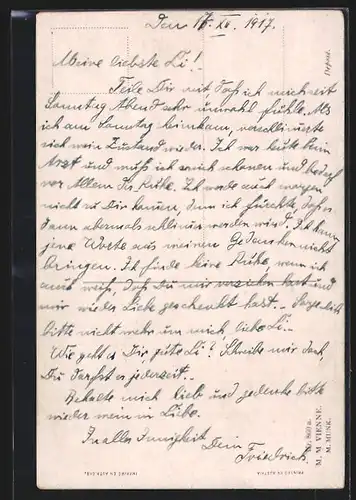 Den 17. XII. 1917.
Meine liebste Li!
Teile Dir mit daß ich mich seit
Samstag Abend sehr unwohl fühle. Als
ich am Samstag heimkam, verschlimmerte
sich mein Zustand wieder. Ich war heute beim
Arzt und muß ich mich schonen und bedarf
vor Allem der Ruhe. Ich werde auch morgen
nicht zu Dir kommen, denn ich fürchte, daß es
dann abermals schlimmer werden wird. Ich kann
jene Worte aus meinen Gedanken nicht
bringen. Ich finde keine Ruhe, wenn ich
auch weiß, daß Du mir verziehen hast und
mir wieder Liebe geschenkt hast. - Sorge Dich
bitte nicht mehr um mich liebe Li. -
Wie geht es Dir, gute Li? Schreibe mir doch,
Du darfst es jederzeit. -
Behalte mich lieb und gedenke bitte
wieder mein in Liebe.
In aller Innigkeit Dein
Friedrich.
Déposé.
M. M. VIENNE.
M. MUNK.